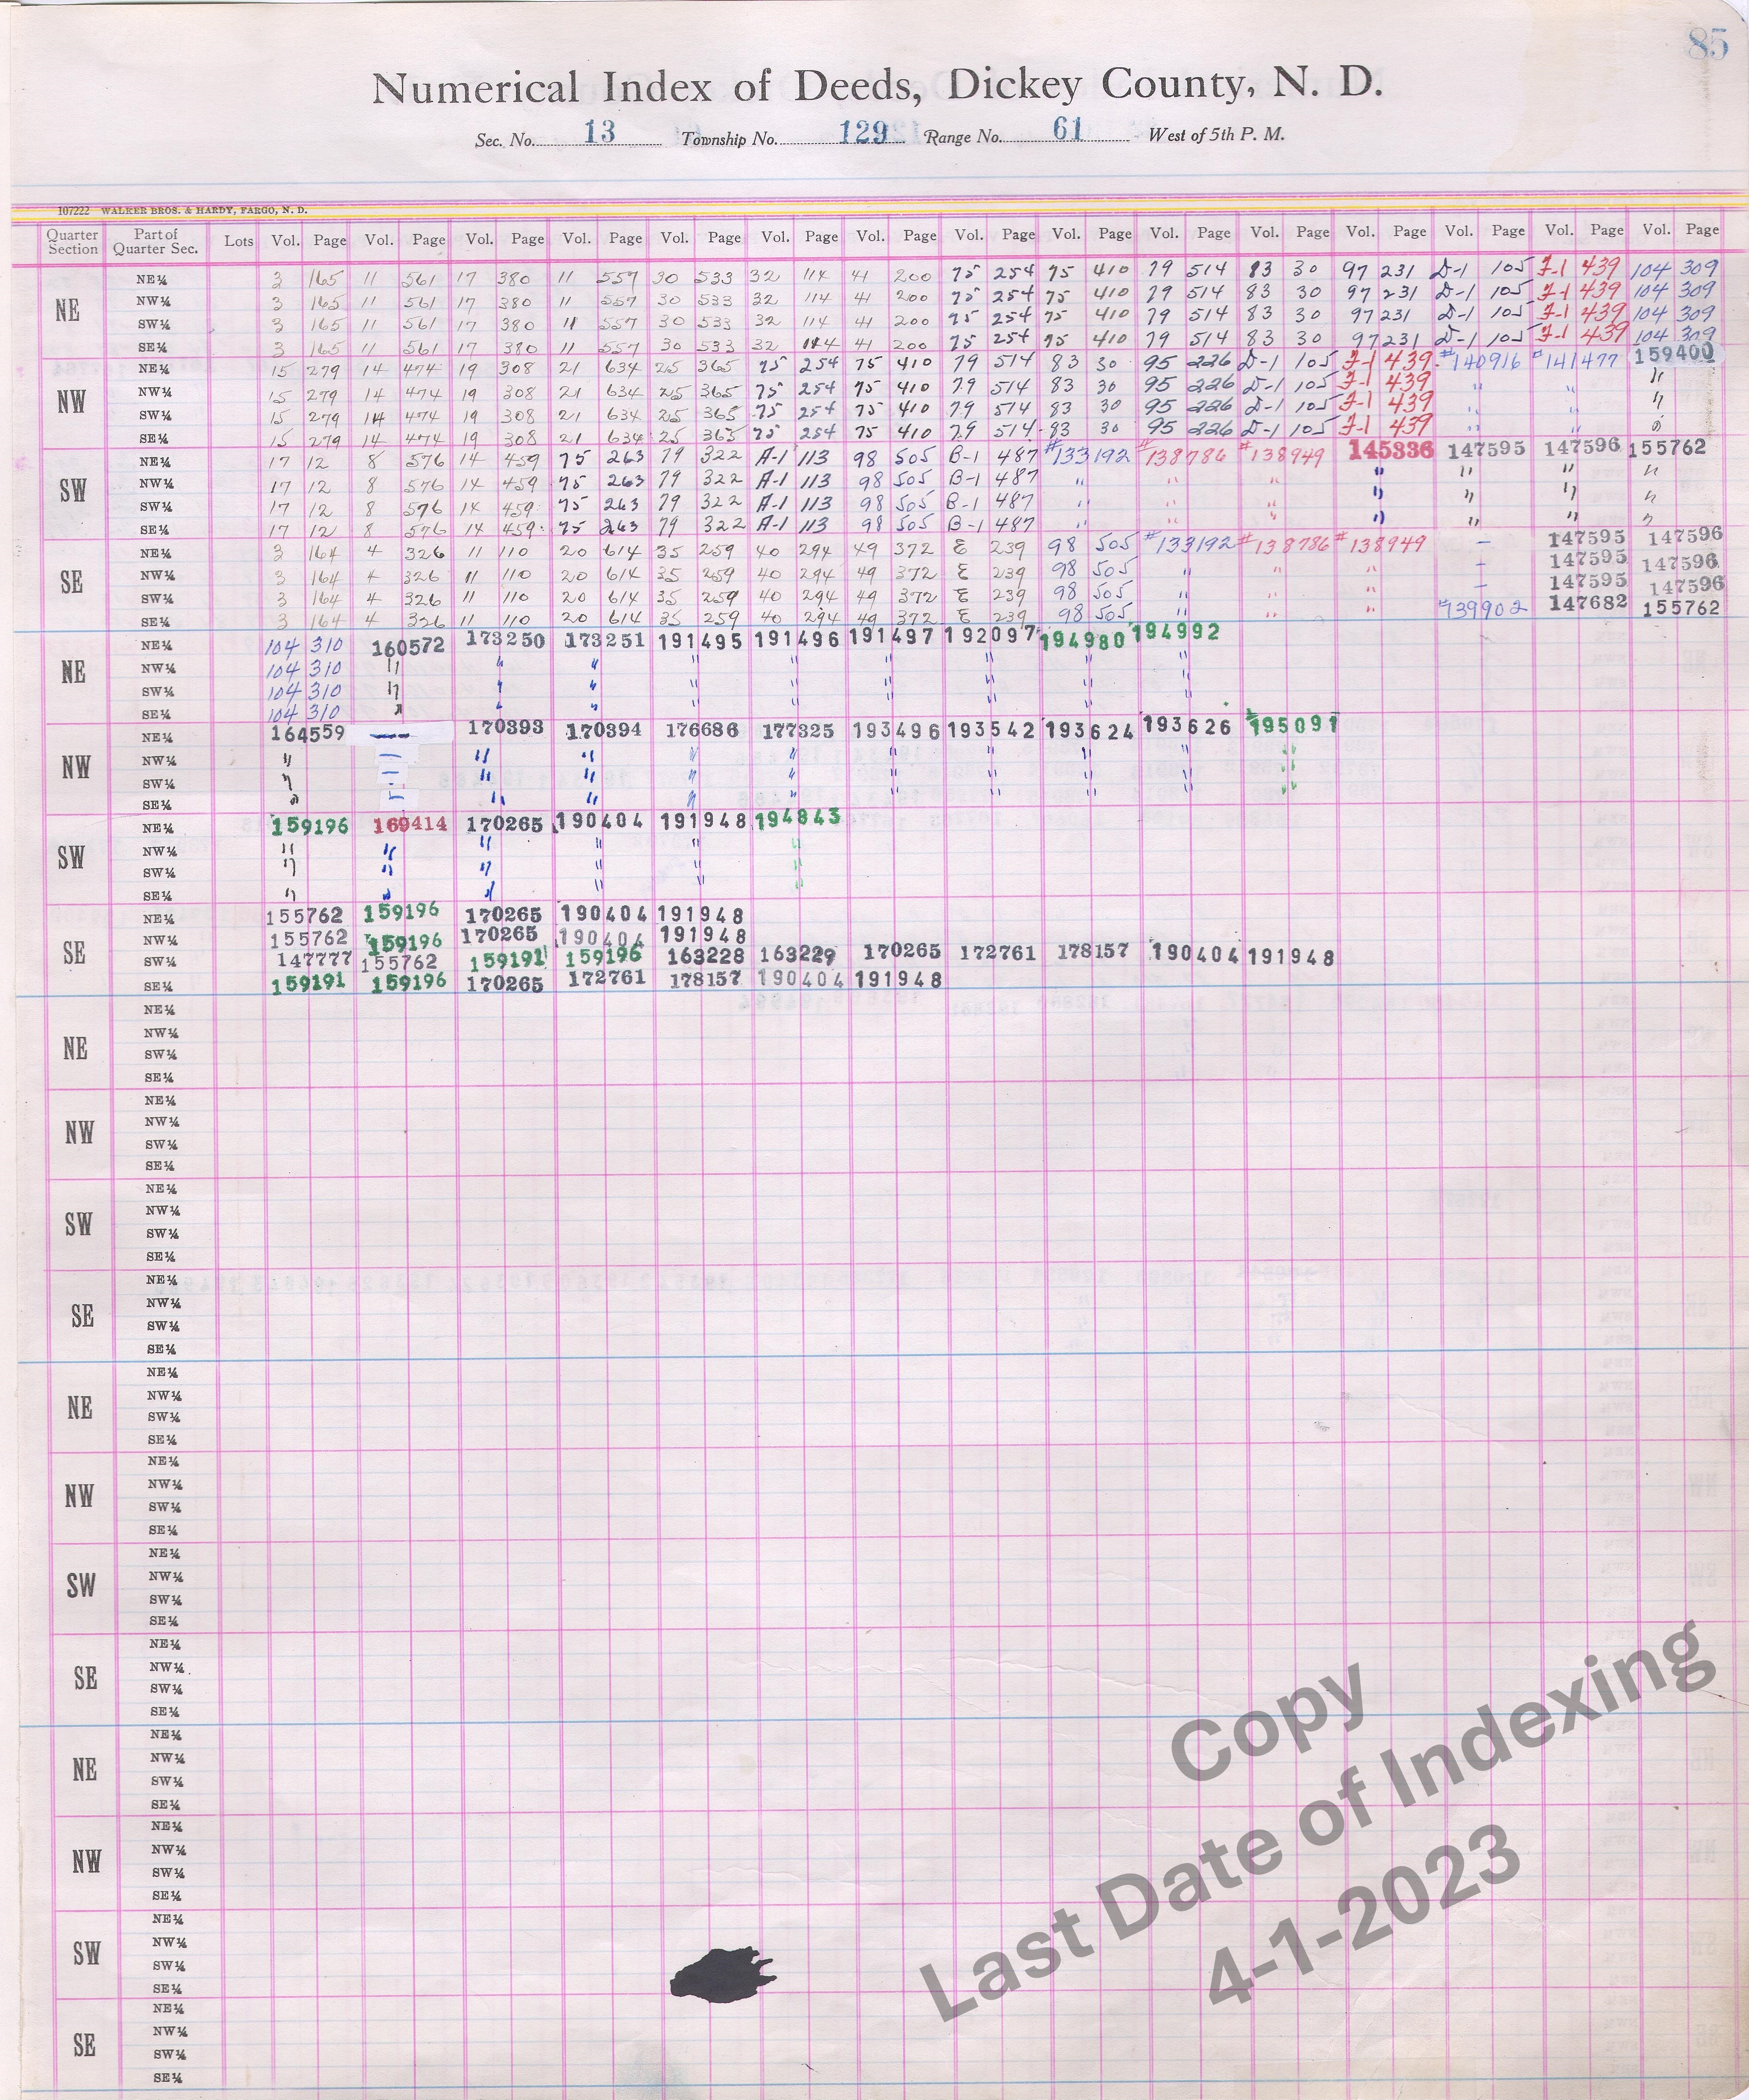 85
Numerical Index of Deeds, Dickey County, N. D.
Sec. No. 13 Township No. 129 Range No. 61 West of 5th P. M.
107222 WALKER BROS. & HARDY, FARGO, N. D.
Quarter Section Part of Quarter Sec. Lots Vol. Page Vol. Page Vol. Page Vol. Page Vol. Page Vol. Page Vol. Page Vol. Page Vol. Page Vol. Page Vol. Page Vol. Page Vol. Page Vol. Page Vol. Page
NE
NE¼ 3 165 11 561 17 380 11 557 30 533 32 114 41 200 75 254 75 410 79 514 83 30 97 231 D-1 105 J-1 439 104 309
NW¼ 3 165 11 561 17 380 11 557 30 533 32 114 41 200 75 254 75 410 79 514 83 30 97 231 D-1 105 J-1 439 104 309
SW¼ 3 165 11 561 17 380 11 557 30 533 32 114 41 200 75 254 75 410 79 514 83 30 97 231 D-1 105 J-1 439 104 309
SE¼ 3 165 11 561 17 380 11 557 30 533 32 114 41 200 75 254 75 410 79 514 83 30 97 231 D-1 105 J-1 439 104 309
NW
NE¼ 15 279 14 474 19 308 21 634 25 365 75 254 75 410 79 514 83 30 95 226 D-1 105 J-1 439 #140916 #141477 159400
NW¼ 15 279 14 474 19 308 21 634 25 365 75 254 75 410 79 514 83 30 95 226 D-1 105 J-1 439 " " "
SW¼ 15 279 14 474 19 308 21 634 25 365 75 254 75 410 79 514 83 30 95 226 D-1 105 J-1 439 " " "
SE¼ 15 279 14 474 19 308 21 634 25 365 75 254 75 410 79 514 83 30 95 226 D-1 105 J-1 439 " " "
SW
NE¼ 17 12 8 576 14 459 75 263 79 322 A-1 113 98 505 B-1 487 #133192 #138786 #138949 145336 147595 147596 155762
NW¼ 17 12 8 576 14 459 75 263 79 322 A-1 113 98 505 B-1 487 " " " " " " "
SW¼ 17 12 8 576 14 459 75 263 79 322 A-1 113 98 505 B-1 487 " " " " " " "
SE¼ 17 12 8 576 14 459 75 263 79 322 A-1 113 98 505 B-1 487 " " " " " " "
SE
NE¼ 3 164 4 326 11 110 20 614 35 259 40 294 49 372 E 239 98 505 #133192 #138786 #138949 — 147595 147596
NW¼ 3 164 4 326 11 110 20 614 35 259 40 294 49 372 E 239 98 505 " " " — 147595 147596
SW¼ 3 164 4 326 11 110 20 614 35 259 40 294 49 372 E 239 98 505 " " " — 147595 147596
SE¼ 3 164 4 326 11 110 20 614 35 259 40 294 49 372 E 239 98 505 " " " #139902 147682 155762
NE
NE¼ 104 310 160572 173250 173251 191495 191496 191497 192097 194980 194992
NW¼ 104 310 " " " " " " " " "
SW¼ 104 310 " " " " " " " " "
SE¼ 104 310 " " " " " " " " "
NW
NE¼ 164559 — 170393 170394 176686 177325 193496 193542 193624 193626 #195091
NW¼ " — " " " " " " " " "
SW¼ " — " " " " " " " " "
SE¼ " — " " " " " " " " "
SW
NE¼ 159196 169414 170265 190404 191948 194843
NW¼ " " " " " "
SW¼ " " " " " "
SE¼ " " " " " "
SE
NE¼ 155762 159196 170265 190404 191948
NW¼ 155762 159196 170265 190404 191948
SW¼ 147777 155762 159191 159196 163228 163229 170265 172761 178157 190404 191948
SE¼ 159191 159196 170265 172761 178157 190404 191948
NE
NE¼
NW¼
SW¼
SE¼
NW
NE¼
NW¼
SW¼
SE¼
SW
NE¼
NW¼
SW¼
SE¼
SE
NE¼
NW¼
SW¼
SE¼
NE
NE¼
NW¼
SW¼
SE¼
NW
NE¼
NW¼
SW¼
SE¼
SW
NE¼
NW¼
SW¼
SE¼
SE
NE¼
NW¼
SW¼
SE¼
NE
NE¼
NW¼
SW¼
SE¼
NW
NE¼
NW¼
SW¼
SE¼
SW
NE¼
NW¼
SW¼
SE¼
SE
NE¼
NW¼
SW¼
SE¼
Copy
Last Date of Indexing
4-1-2023